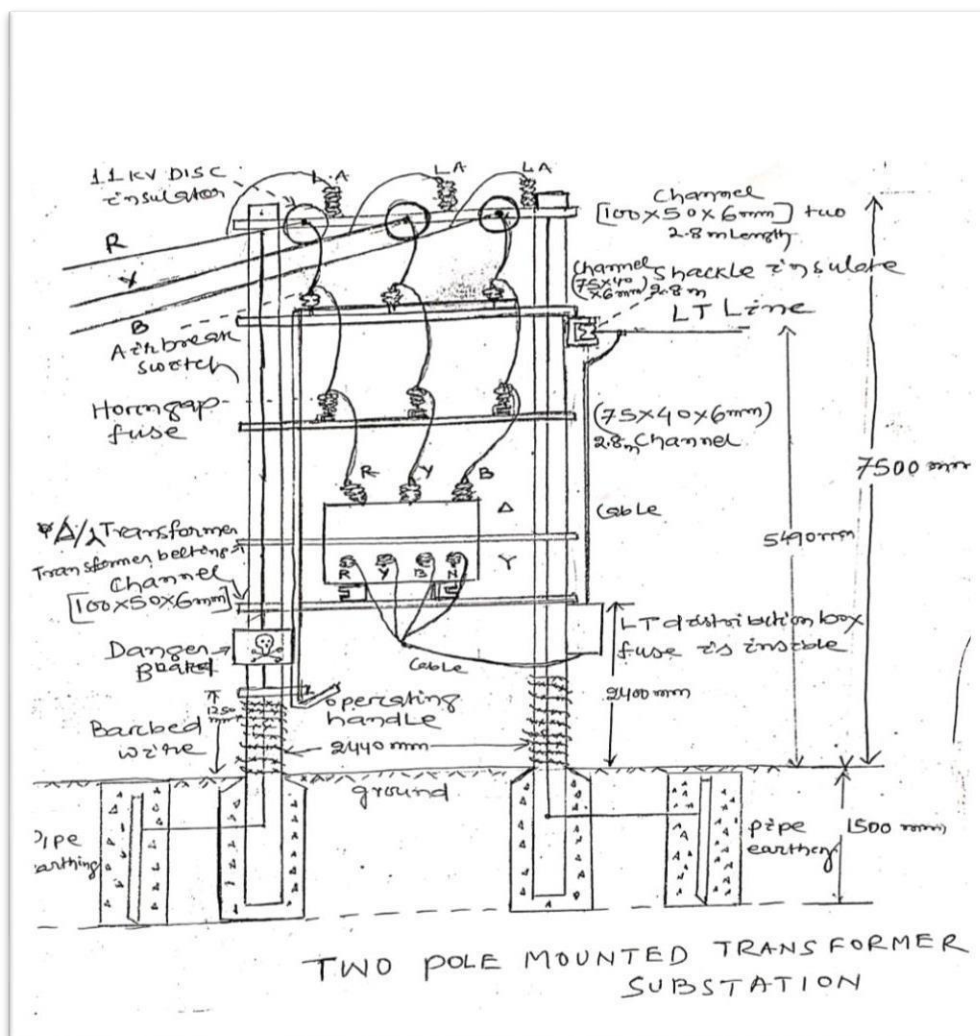 11KV DISC
insulator
L.A
LA
LA
Channel
[100X50X6mm] two
2.8m Length
R
Y
B
Channel
(75X40
X6mm) 2.8m
Shackle insulate
LT Line
Airbreak
switch
Horngap-
fuse
(75X40X6mm)
2.8m Channel
7500mm
R
Y
B
Δ
Cable
5490mm
Δ/Y Transformer
Transformer belting
Channel
[100X50X6mm]
R
Y
B
N
Y
LT distribution box
fuse is inside
Danger
Board
Cable
2400mm
1250
Operating
handle
Barbed
wire
2440mm
ground
pipe
earthing
1500mm
pipe
earthing
TWO POLE MOUNTED TRANSFORMER
SUBSTATION